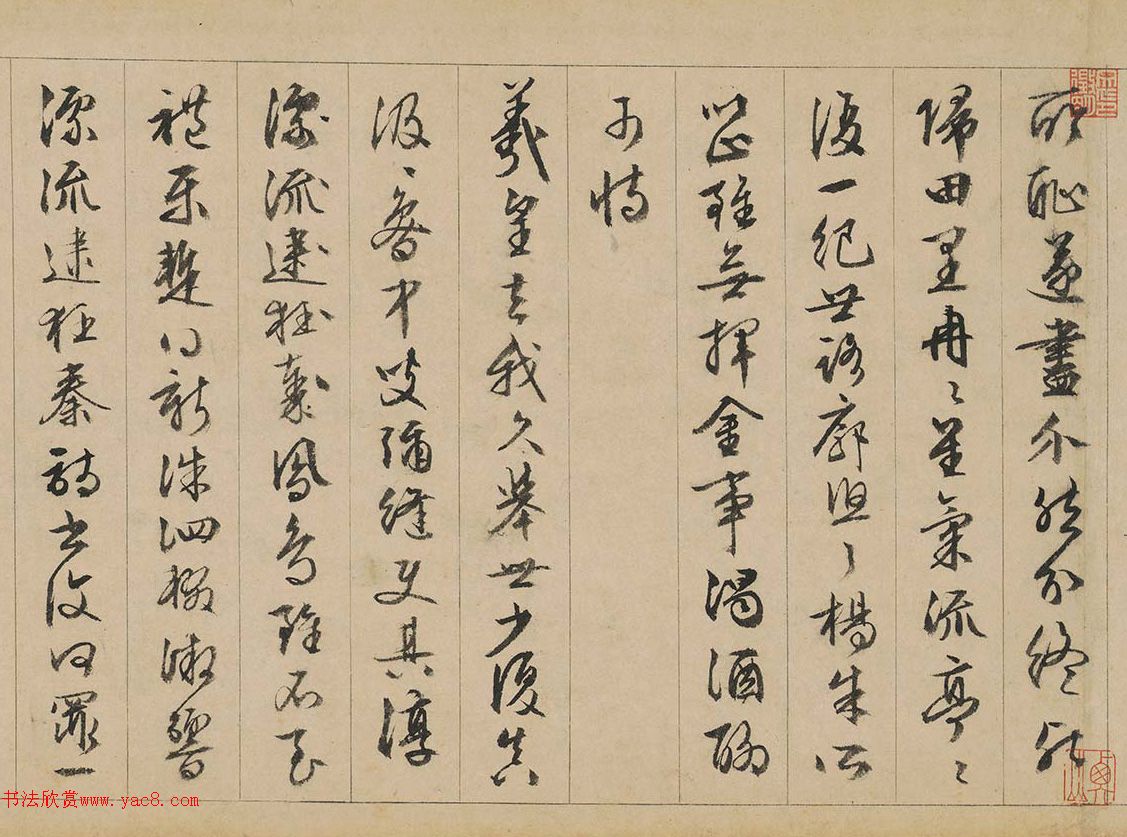 所恥遂盡介然分終死
歸田里冉〻星氣流亭〻
復一紀世路廓楊朱所
以止雖無揮金事濁酒聊
可恃
羲皇去我久舉世少復真
汲〻魯中叟彌縫使其淳
漂流逮狂秦鳳鳥雖不至
禮樂暫得新洙泗輟微響
漂流逮狂秦詩書復何罪一
书法欣赏www.yac8.com